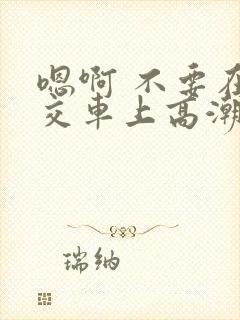 嗯啊 不要在
交车上高潮
瑞纳